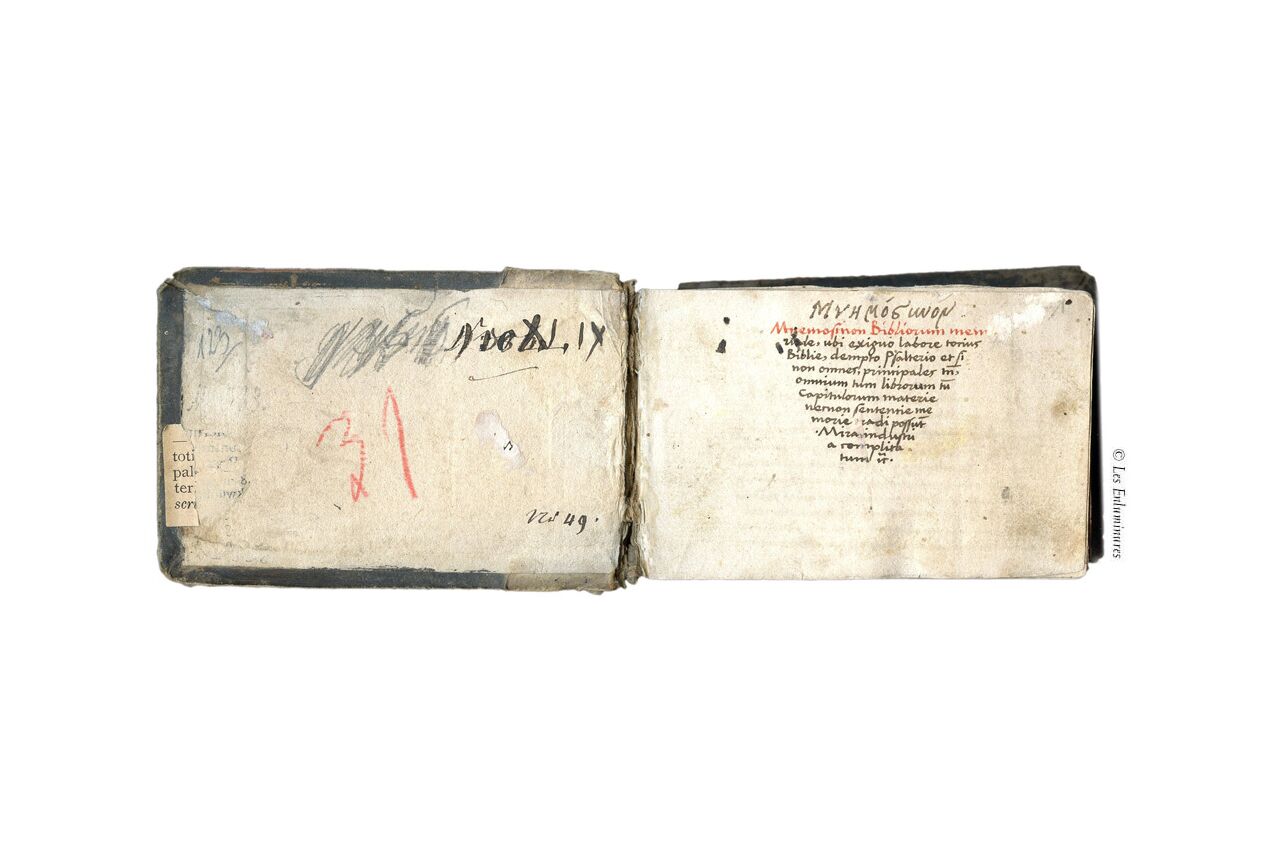 123
No XLIX
31
toti
pal
ter
scri
No 49.
Μνημόσινόν
Mnemosinon Bibliorum mem
riale, ubi exiguo labore totius
Biblie, dempto Psalterio et si
non omnes, principales tn̄,
omnium tum librorum tū
Capitulorum materie
necnon sententie me
morie tradi possūt
.Mira industri
a complica
tum iť.
© Les Enluminures